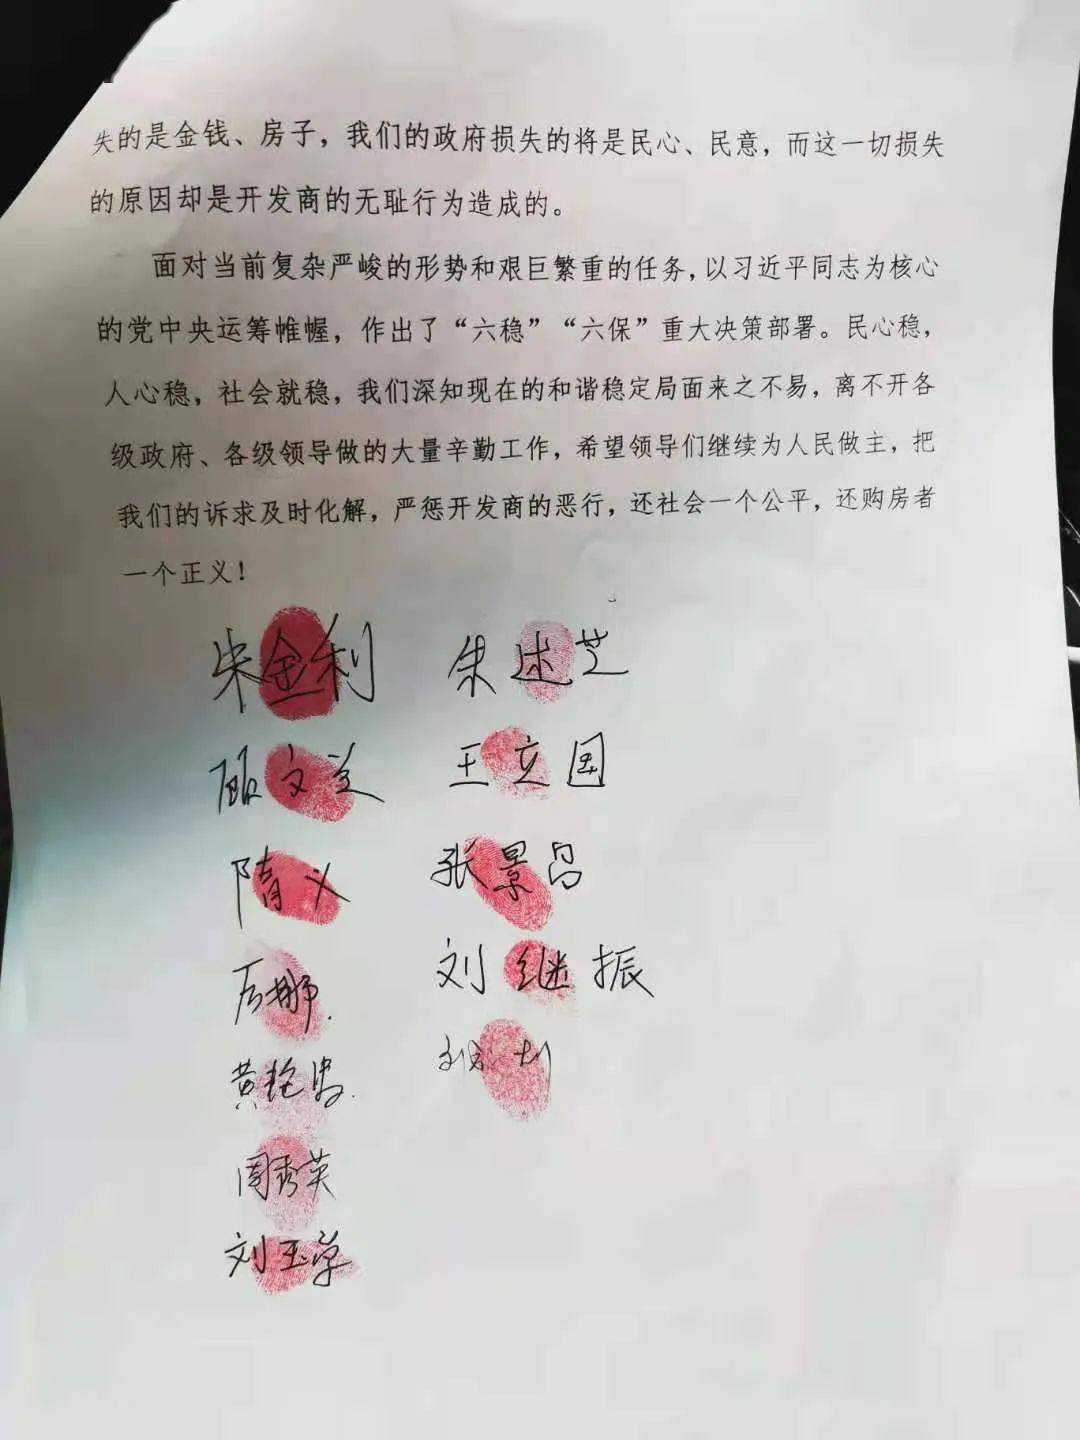 失的是金钱、房子，我们的政府损失的将是民心、民意，而这一切损失
的原因却是开发商的无耻行为造成的。
面对当前复杂严峻的形势和艰巨繁重的任务，以习近平同志为核心
的党中央运筹帷幄，作出了“六稳”“六保”重大决策部署。民心稳，
人心稳，社会就稳，我们深知现在的和谐稳定局面来之不易，离不开各
级政府、各级领导做的大量辛勤工作，希望领导们继续为人民做主，把
我们的诉求及时化解，严惩开发商的恶行，还社会一个公平，还购房者
一个正义！
朱金利 朱述芝
顾文兰 王立国
隋义 张景昌
刘继振
周秀英
刘玉学